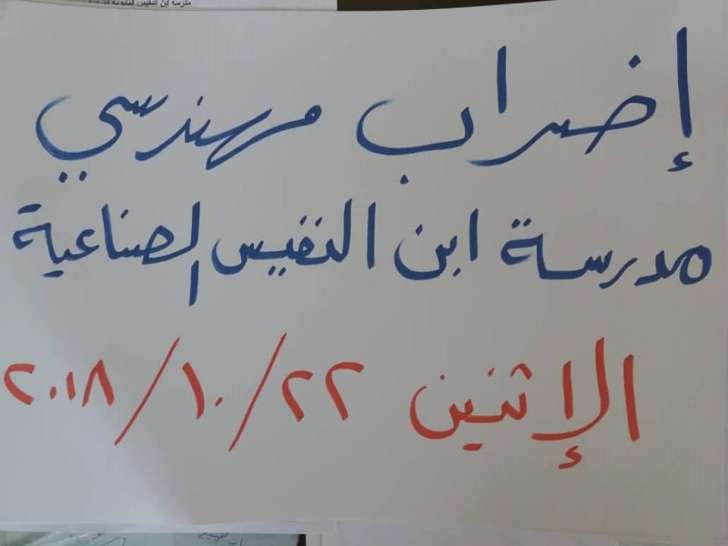 إضراب مهندسي
مدرسة ابن النفيس الصناعية
الإثنين ٢٢/١٠/٢٠١٨